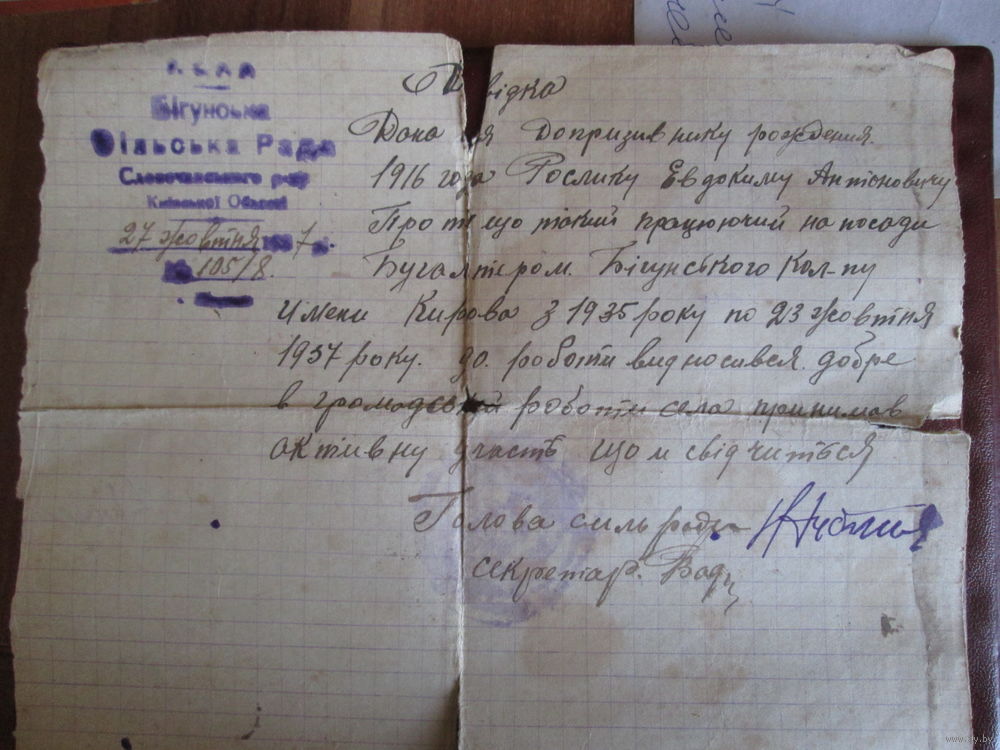 Бігунська
Сільська Рада
Словечанського р-ну
Київської Області
27 жовтня 1937 р.
№ 105/8.
Довідка
Дана ця Допризивнику рождения
1916 года Рослику Евдокиму Антоновичу
Про те що такий працюючий на посади
Бугалтером Бігунського Кол-пу
имени Кирова з 1935 року по 23 жовтня
1937 року. до роботи видносився добре
в громадській роботи села принимав
активну участь що и свідчиться
Голова сильради
секретар.